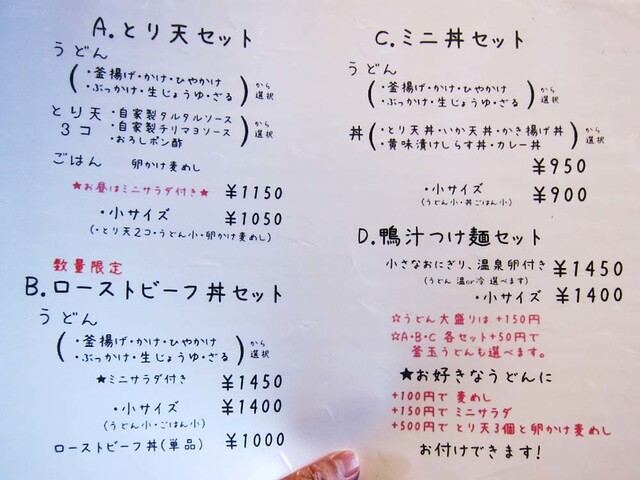 A.とり天セット
うどん
(・釜揚げ・かけ・ひやかけ
・ぶっかけ・生じょうゆ・ざる) から選択
とり天 3コ
(・自家製タルタルソース
・自家製チリマヨソース
・おろしポン酢) から選択
ごはん 卵かけ麦めし
★お昼はミニサラダ付き★ ¥1150
・小サイズ ¥1050
(・とり天2コ・うどん小・卵かけ麦めし)
数量限定
B.ローストビーフ丼セット
うどん
(・釜揚げ・かけ・ひやかけ
・ぶっかけ・生じょうゆ・ざる) から選択
★ミニサラダ付き ¥1450
・小サイズ ¥1400
(うどん小・ごはん小)
ローストビーフ丼(単品) ¥1000
C.ミニ丼セット
うどん
(・釜揚げ・かけ・ひやかけ
・ぶっかけ・生じょうゆ・ざる) から選択
丼 (・とり天丼・いか天丼・かき揚げ丼
・黄味漬けしらす丼・カレー丼) から選択
¥950
・小サイズ ¥900
(うどん小・丼ごはん小)
D.鴨汁つけ麺セット
小さなおにぎり、温泉卵付き ¥1450
(うどん 温or冷 選べます)
・小サイズ ¥1400
☆うどん大盛りは +150円
☆A・B・C 各セット+50円で
釜玉うどんも選べます。
★お好きなうどんに
+100円で 麦めし
+150円で ミニサラダ
+500円で とり天3個と卵かけ麦めし
お付けできます!